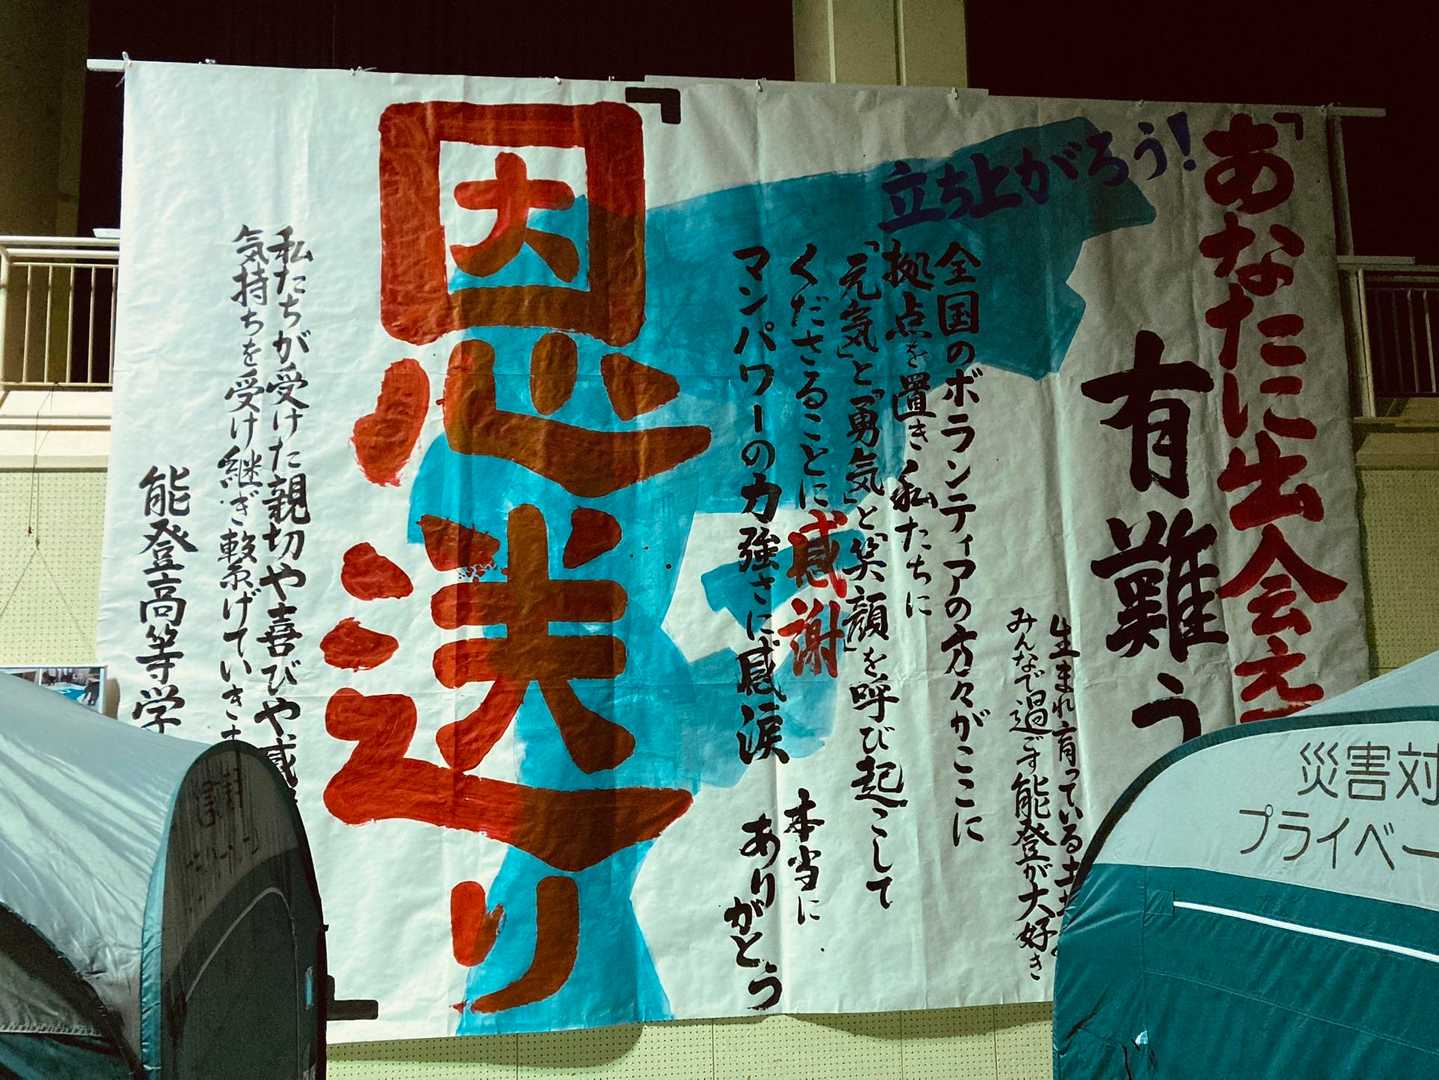 「あなたに出会え
有難う
立ち上がろう!
生まれ育っている土
みんなで過ごす能登が大好き
全国のボランティアの方々がここに
拠点を置き私たちに
「元気」と「勇気」と「笑顔」を呼び起こして
くださることに感謝
マンパワーの力強さに感涙
本当に
ありがとう
「恩送り」
私たちが受けた親切や喜びや感
気持ちを受け継ぎ繋げていきま
能登高等学
災害対
プライベー